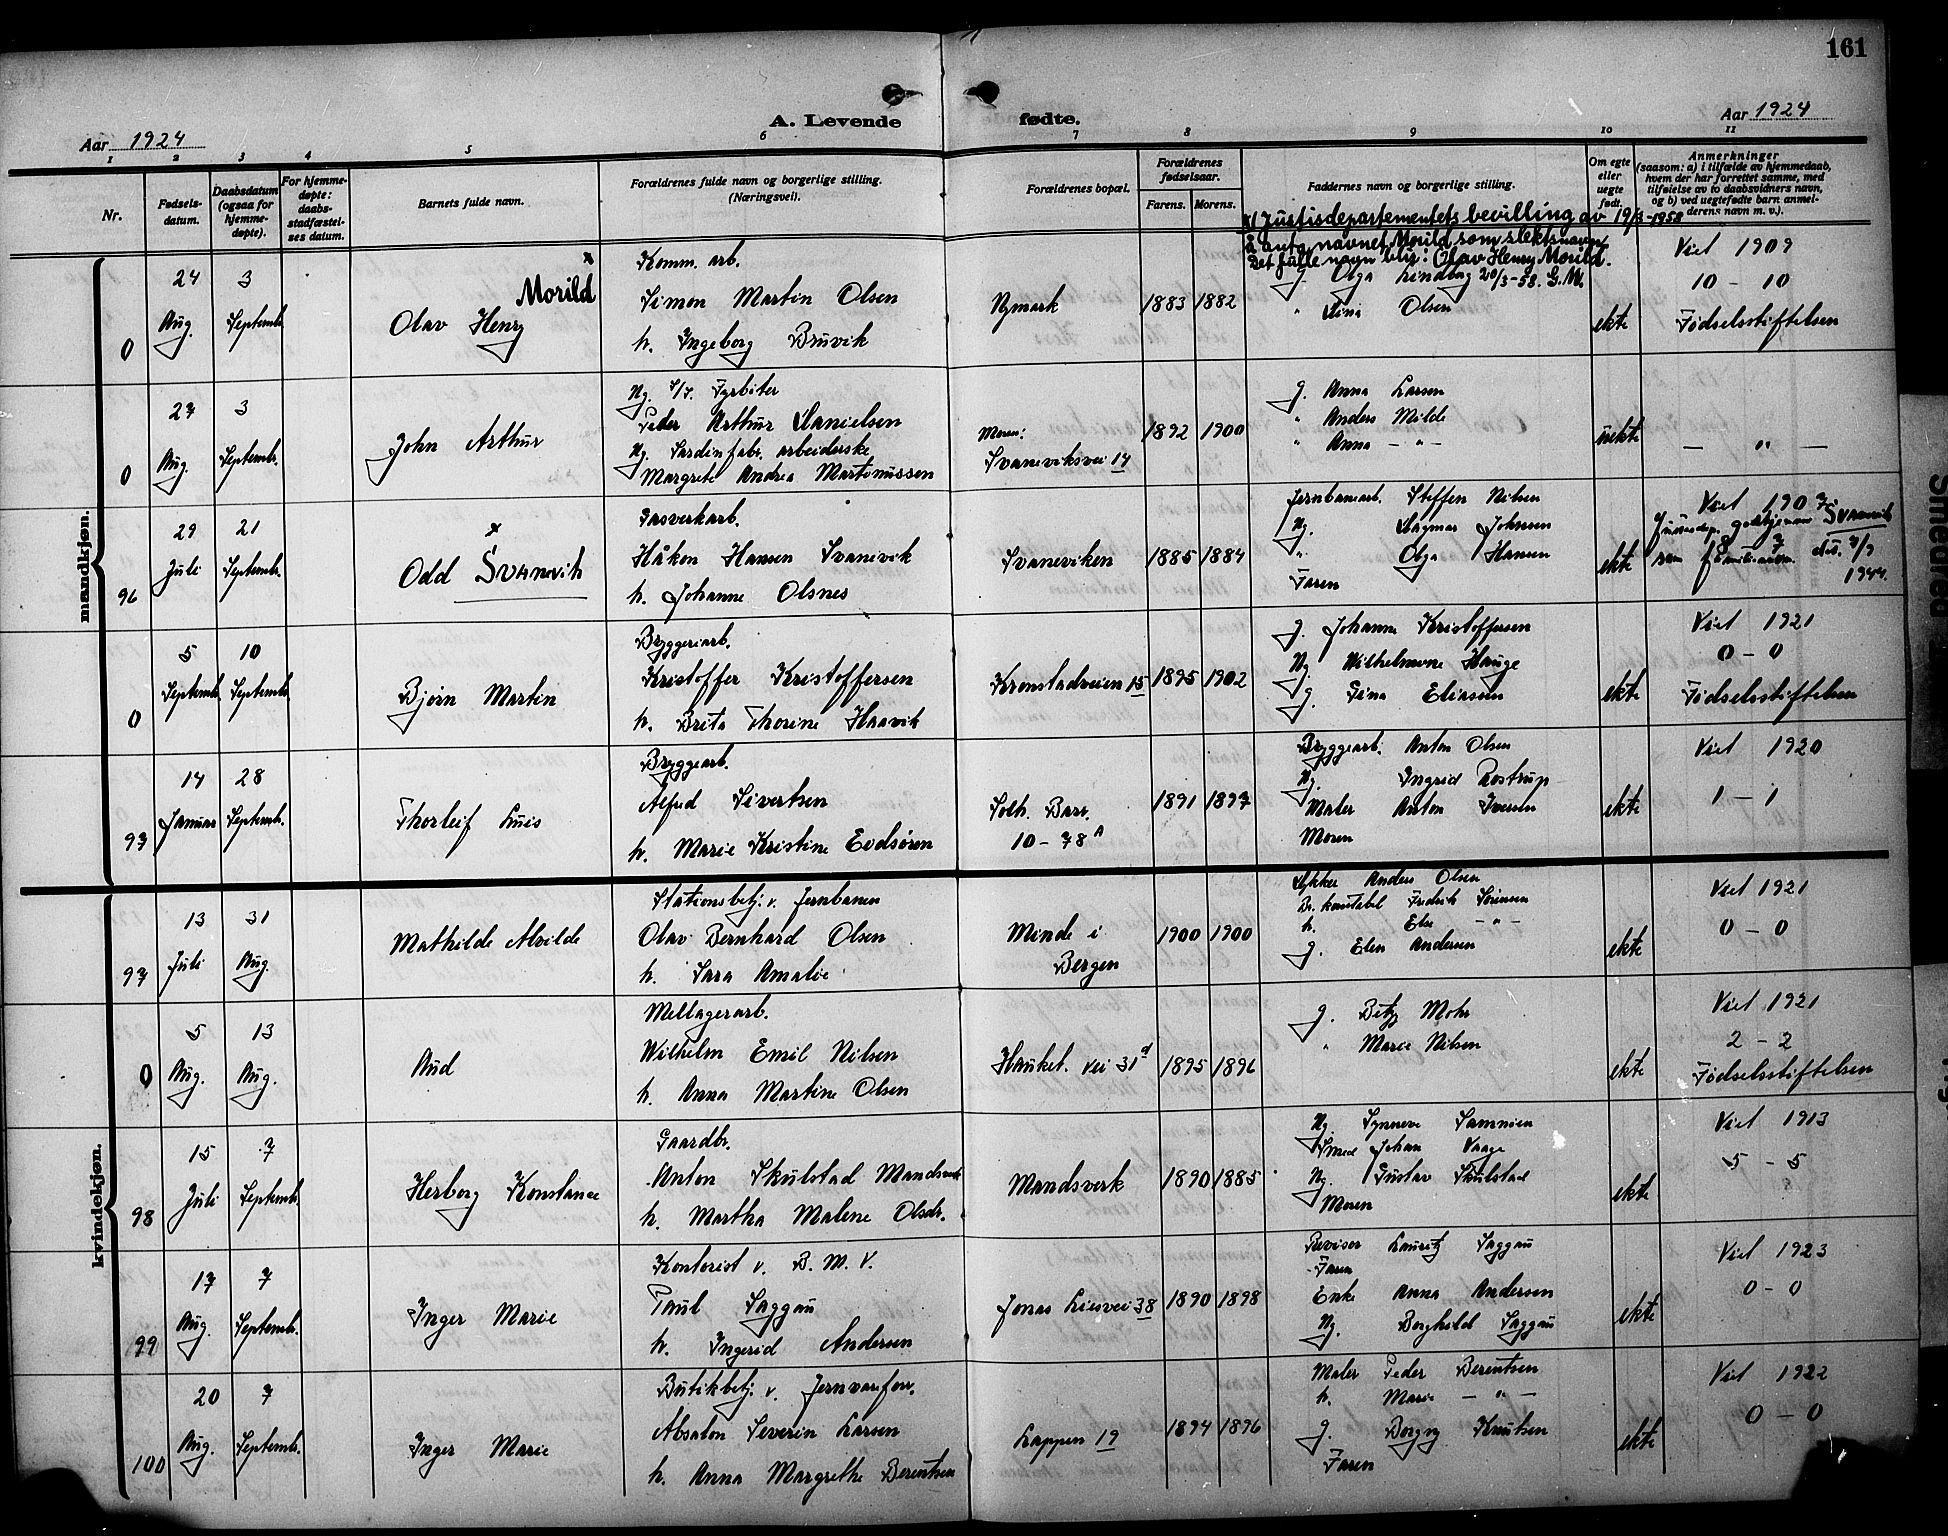 161
Aar 1924
A. Levende fødte.
Aar 1924
1 2 3 4 5 6 7 8 9 10 11
Nr.
Fødsels-
datum.
Daabsdatum
(ogsaa for
hjemme-
døpte).
For hjemme-
døpte:
daabs-
stadfæstel-
ses datum.
Barnets fulde navn.
Forældrenes fulde navn og borgerlige stilling.
(Næringsvei).
Forældrenes bopæl.
Forældrenes
fødselsaar.
Farens. Morens.
Faddernes navn og borgerlige stilling.
Om egte
eller
uegte
født.
Anmerkninger
(saasom: a) i tilfælde av hjemmedaab,
hvem der har forrettet samme, med
tilføielse av to daabsvidners navn,
og b) ved uegtefødte barn anmel-
derens navn m. v.).
mandkjøn.
0
24
Aug.
3
Septemb.
x
Morild
Olav Henry
Komm. arb.
Simon Martin Olsen
h. Ingeborg Bruvik
Nymark
1883 1882
x) Justisdepartementets bevilling av 19/3-1958
å anta navnet Morild som slektsnavn.
Det fulle navn blir: Olav Henry Morild.
20/3-58. G.M.
g. Olga Lindtog
" Lina Olsen
ekte
Viet 1909
10 - 10
Fødselsstiftelsen
0
27
Aug.
3
Septemb.
John Arthur
Ug. S/S. Fyrbøter
Peder Arthur Danielsen
Ug. Sardinfabr. arbeiderske
Margrete Andrea Martinussen
Moren:
Svaneviksvei 14
1892 1900
g. Anna Larsen
" Anders Milde
" Anna - " -
uekte
— " —
96
29
Juli
21
Septemb.
x
Odd Svanevik
Gasverkarb.
Håkon Hansen Svanevik
h. Johanne Olsnes
Svaneviken
1885 1884
Jernbanearb. Steffen Nilsen
Ug. Dagmar Johnsen
" Olga Hansen
Faren
ekte
Viet 1907
Svanevik
som familienavn
1944.
0
5
Septemb.
10
Septemb.
Bjørn Martin
Bryggeriarb.
Kristoffer Kristoffersen
h. Brita Thorine Haavik
Kronstadveien 15
1895 1902
g. Johanne Kristoffersen
Ug. Wilhelmine Hauge
g. Gina Eliassen
ekte
Viet 1921
0 - 0
Fødselsstiftelsen
97
14
Januar
28
Septemb.
Thorleif Luis
Bryggearb.
Alfred Sivertsen
h. Marie Kristine Evdsøren
Solh. Barr.
10 - 78 A
1891 1897
Bryggearb. Anton Olsen
Ug. Ingrid Rostrup
Maler Anton Iversen
Moren
ekte
Viet 1920
1 - 1
kvindekjøn.
97
13
Juli
31
Aug.
Mathilde Alvilde
Stationsbetj. v. Jernbanen
Olav Bernhard Olsen
h. Sara Amalie
Minde i
Bergen
1900 1900
Anders Olsen
Fredrik Sørensen
h. Else - " -
g. Elen Andersen
ekte
Viet 1921
0 - 0
0
5
Aug.
13
Aug.
Aud
Mellagerarb.
Wilhelm Emil Nilsen
h. Anna Martine Olsen
Hauket. vei 31 d
1895 1896
g. Betzy Mohr
" Marie Nilsen
ekte
Viet 1921
2 - 2
Fødselsstiftelsen
98
15
Juli
7
Septemb.
Herborg Konstance
Gaardbr.
Anton Skulstad Mandsverk
h. Martha Malene Olsdr.
Mandsverk
1890 1885
Ug. Synneve Samnøen
Smed Johan Vaage
Ug. Gustav Skulstad
Moren
ekte
Viet 1913
5 - 5
99
17
Aug.
7
Septemb.
Inger Marie
Kontorist v. B. M. V.
Paul Saggau
h. Ingerid Andersen
Jonas Liesvei 38
1890 1898
Revisor Lauritz Saggau
Faren
Enke Anna Andersen
Ug. Borghild Saggau
ekte
Viet 1923
0 - 0
100
20
Aug.
7
Septemb.
Inger Marie
Butikbetj. v. Jernvareforr.
Absalon Severin Larsen
h. Anna Margrethe Berentsen
Lappen 19
1894 1896
Maler Peder Berentsen
h. Marie - " -
g. Borgny Knutsen
Faren
ekte
Viet 1922
0 - 0